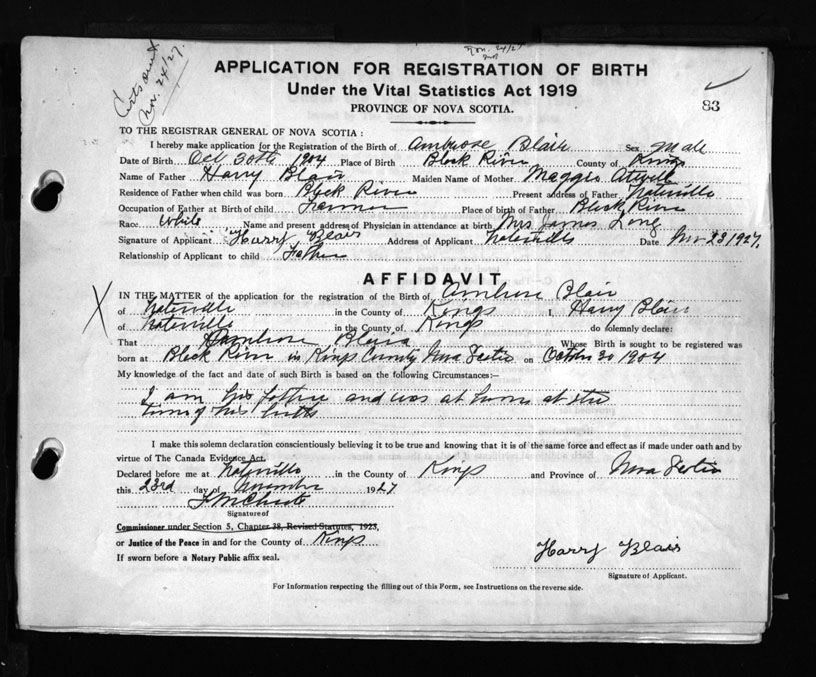 Nov. 24/27
Certs sent
Nov. 24/27.
APPLICATION FOR REGISTRATION OF BIRTH
Under the Vital Statistics Act 1919
PROVINCE OF NOVA SCOTIA.
83
TO THE REGISTRAR GENERAL OF NOVA SCOTIA:
I hereby make application for the Registration of the Birth of Ambrose Blair Sex Male
Date of Birth Oct 30th 1904 Place of Birth Black River County of Kings
Name of Father Harry Blair Maiden Name of Mother Maggie
Residence of Father when child was born Black River Present address of Father
Occupation of Father at Birth of child Farmer Place of birth of Father Black River
Race White Name and present address of Physician in attendance at birth Mrs James Long
Signature of Applicant Harry Blair Address of Applicant Date Nov 23 1927.
Relationship of Applicant to child Father
AFFIDAVIT
IN THE MATTER of the application for the registration of the Birth of Ambrose Blair
of in the County of Kings I, Harry Blair
of in the County of Kings do solemnly declare:
That Ambrose Blair Whose Birth is sought to be registered was
born at Black River in Kings County Nova Scotia on October 30 1904
My knowledge of the fact and date of such Birth is based on the following Circumstances:—
I am his father and was at home at the
time of his birth
I make this solemn declaration conscientiously believing it to be true and knowing that it is of the same force and effect as if made under oath and by
virtue of The Canada Evidence Act.
Declared before me at in the County of Kings and Province of Nova Scotia
this 23rd day of November 1927
Signature of
Commissioner under Section 5, Chapter 38, Revised Statutes, 1923,
or Justice of the Peace in and for the County of Kings
If sworn before a Notary Public affix seal.
Harry Blair
Signature of Applicant.
For Information respecting the filling out of this Form, see Instructions on the reverse side.